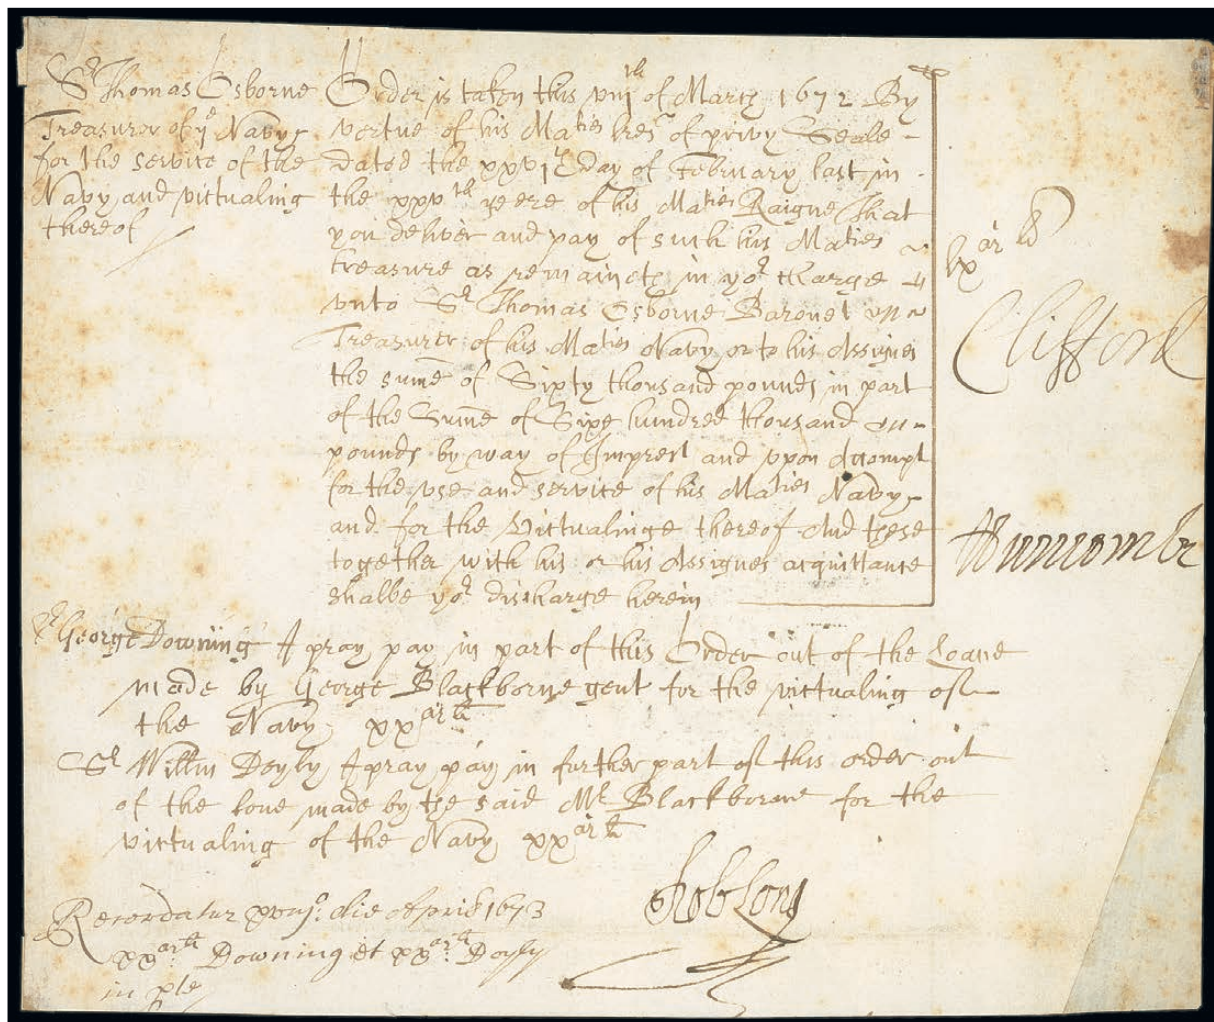 Sr Thomas Osborne
Treasurer of ye Navy
for the service of the
Navy and victualing
thereof
Order is taken this viijth of March 1672 By
vertue of his Maties lres of privy Seale
dated the xxvjth day of February last in
the xxvth yeere of his Maties Raigne That
you deliver and pay of such his Maties
treasure as remaineth in yor charge
unto Sr Thomas Osborne Baronet
Treasurer of his Maties Navy or to his Assignes
the sume of Sixty thousand pounds in part
of the Sume of Sixe hundred thousand
pounds by way of Imprest and upon Accompt
for the use and service of his Maties Navy
and for the Victualinge thereof And these
together with his or his Assignes acquittance
shalbe yor discharge herein
lxm li
Clifford
JDuncombe
Sr George Downing I pray pay in part of this Order out of the Loane
made by George Blackborne gent for the victualing of
the Navy xxm li
Sr Willm Doyly I pray pay in further part of this order out
of the lone made by the said Mr Blackborne for the
victualing of the Navy xxm li
Rob Long
Recordatur die Aprilis 1673
xxm li Downing et xxm li Doyly
in pte